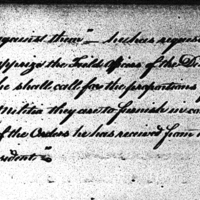 against them" — he has reques
apprize the Field Officers of the Di
he shall call for the proportions
Militia they are to furnish in ca
of the Orders he has received from
sident."